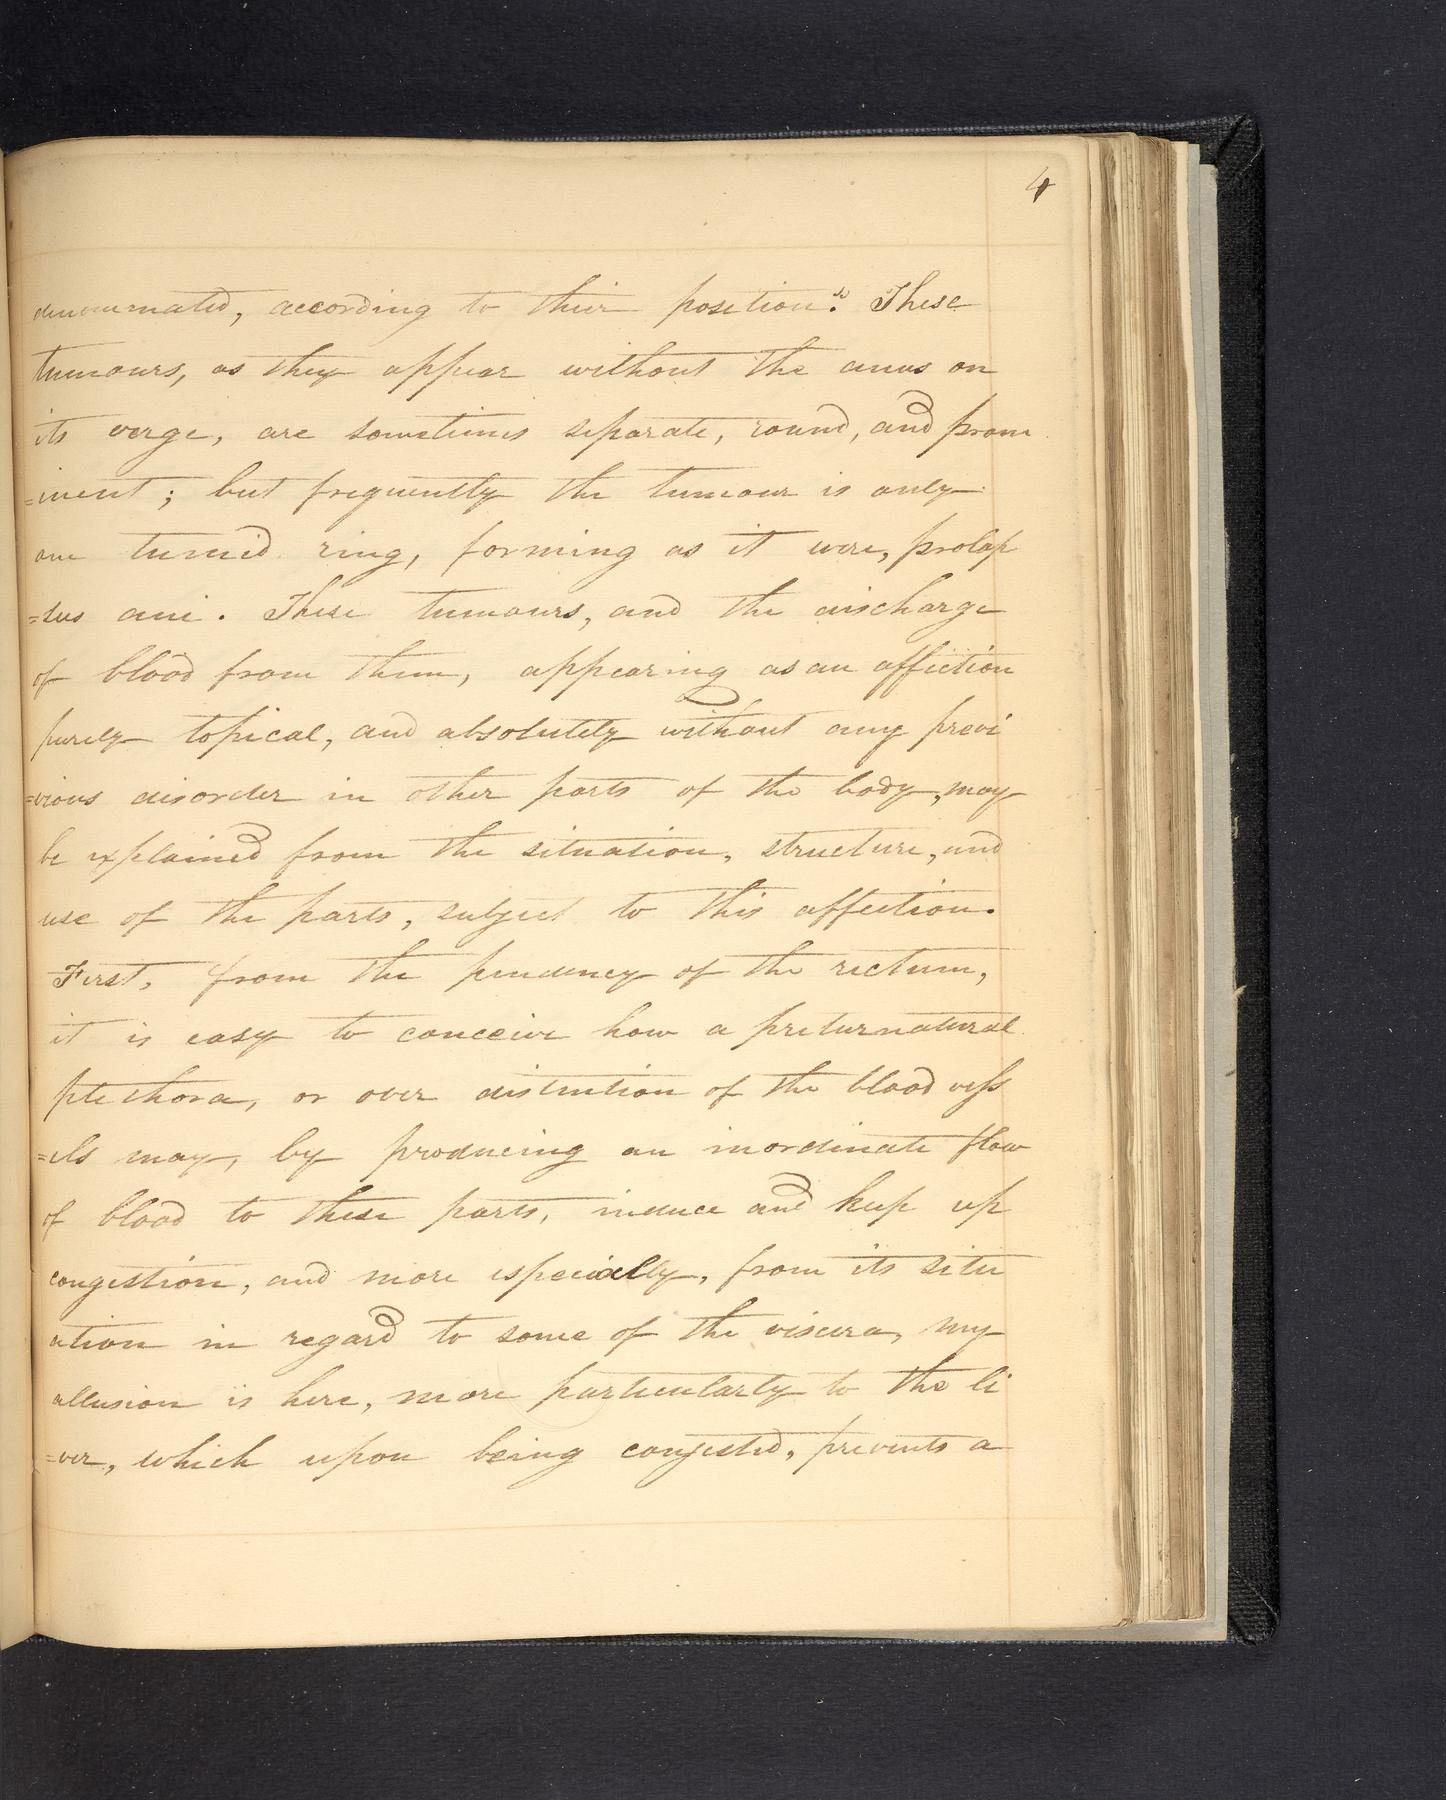 4
denominated, according to their position." These
tumours, as they appear without the anus on
its verge, are sometimes separate, round, and prom
=inent; but frequently the tumour is only
one tumid ring, forming as it were, prolap
=sus ani. These tumours, and the discharge
of blood from them, appearing as an affection
purely topical, and absolutely without any previ
=vious disorder in other parts of the body, may
be explained from the situation, structure, and
use of the parts, subject to this affection.
First, from the pendency of the rectum,
it is easy to conceive how a preternatural
plethora, or over distention of the blood vess
=els may, by producing an inordinate flow
of blood to these parts, induce and keep up
congestion, and more especially, from its situ
ation in regard to some of the viscera, my
allusion is here, more particularly to the li
=ver, which upon being congested, prevents a